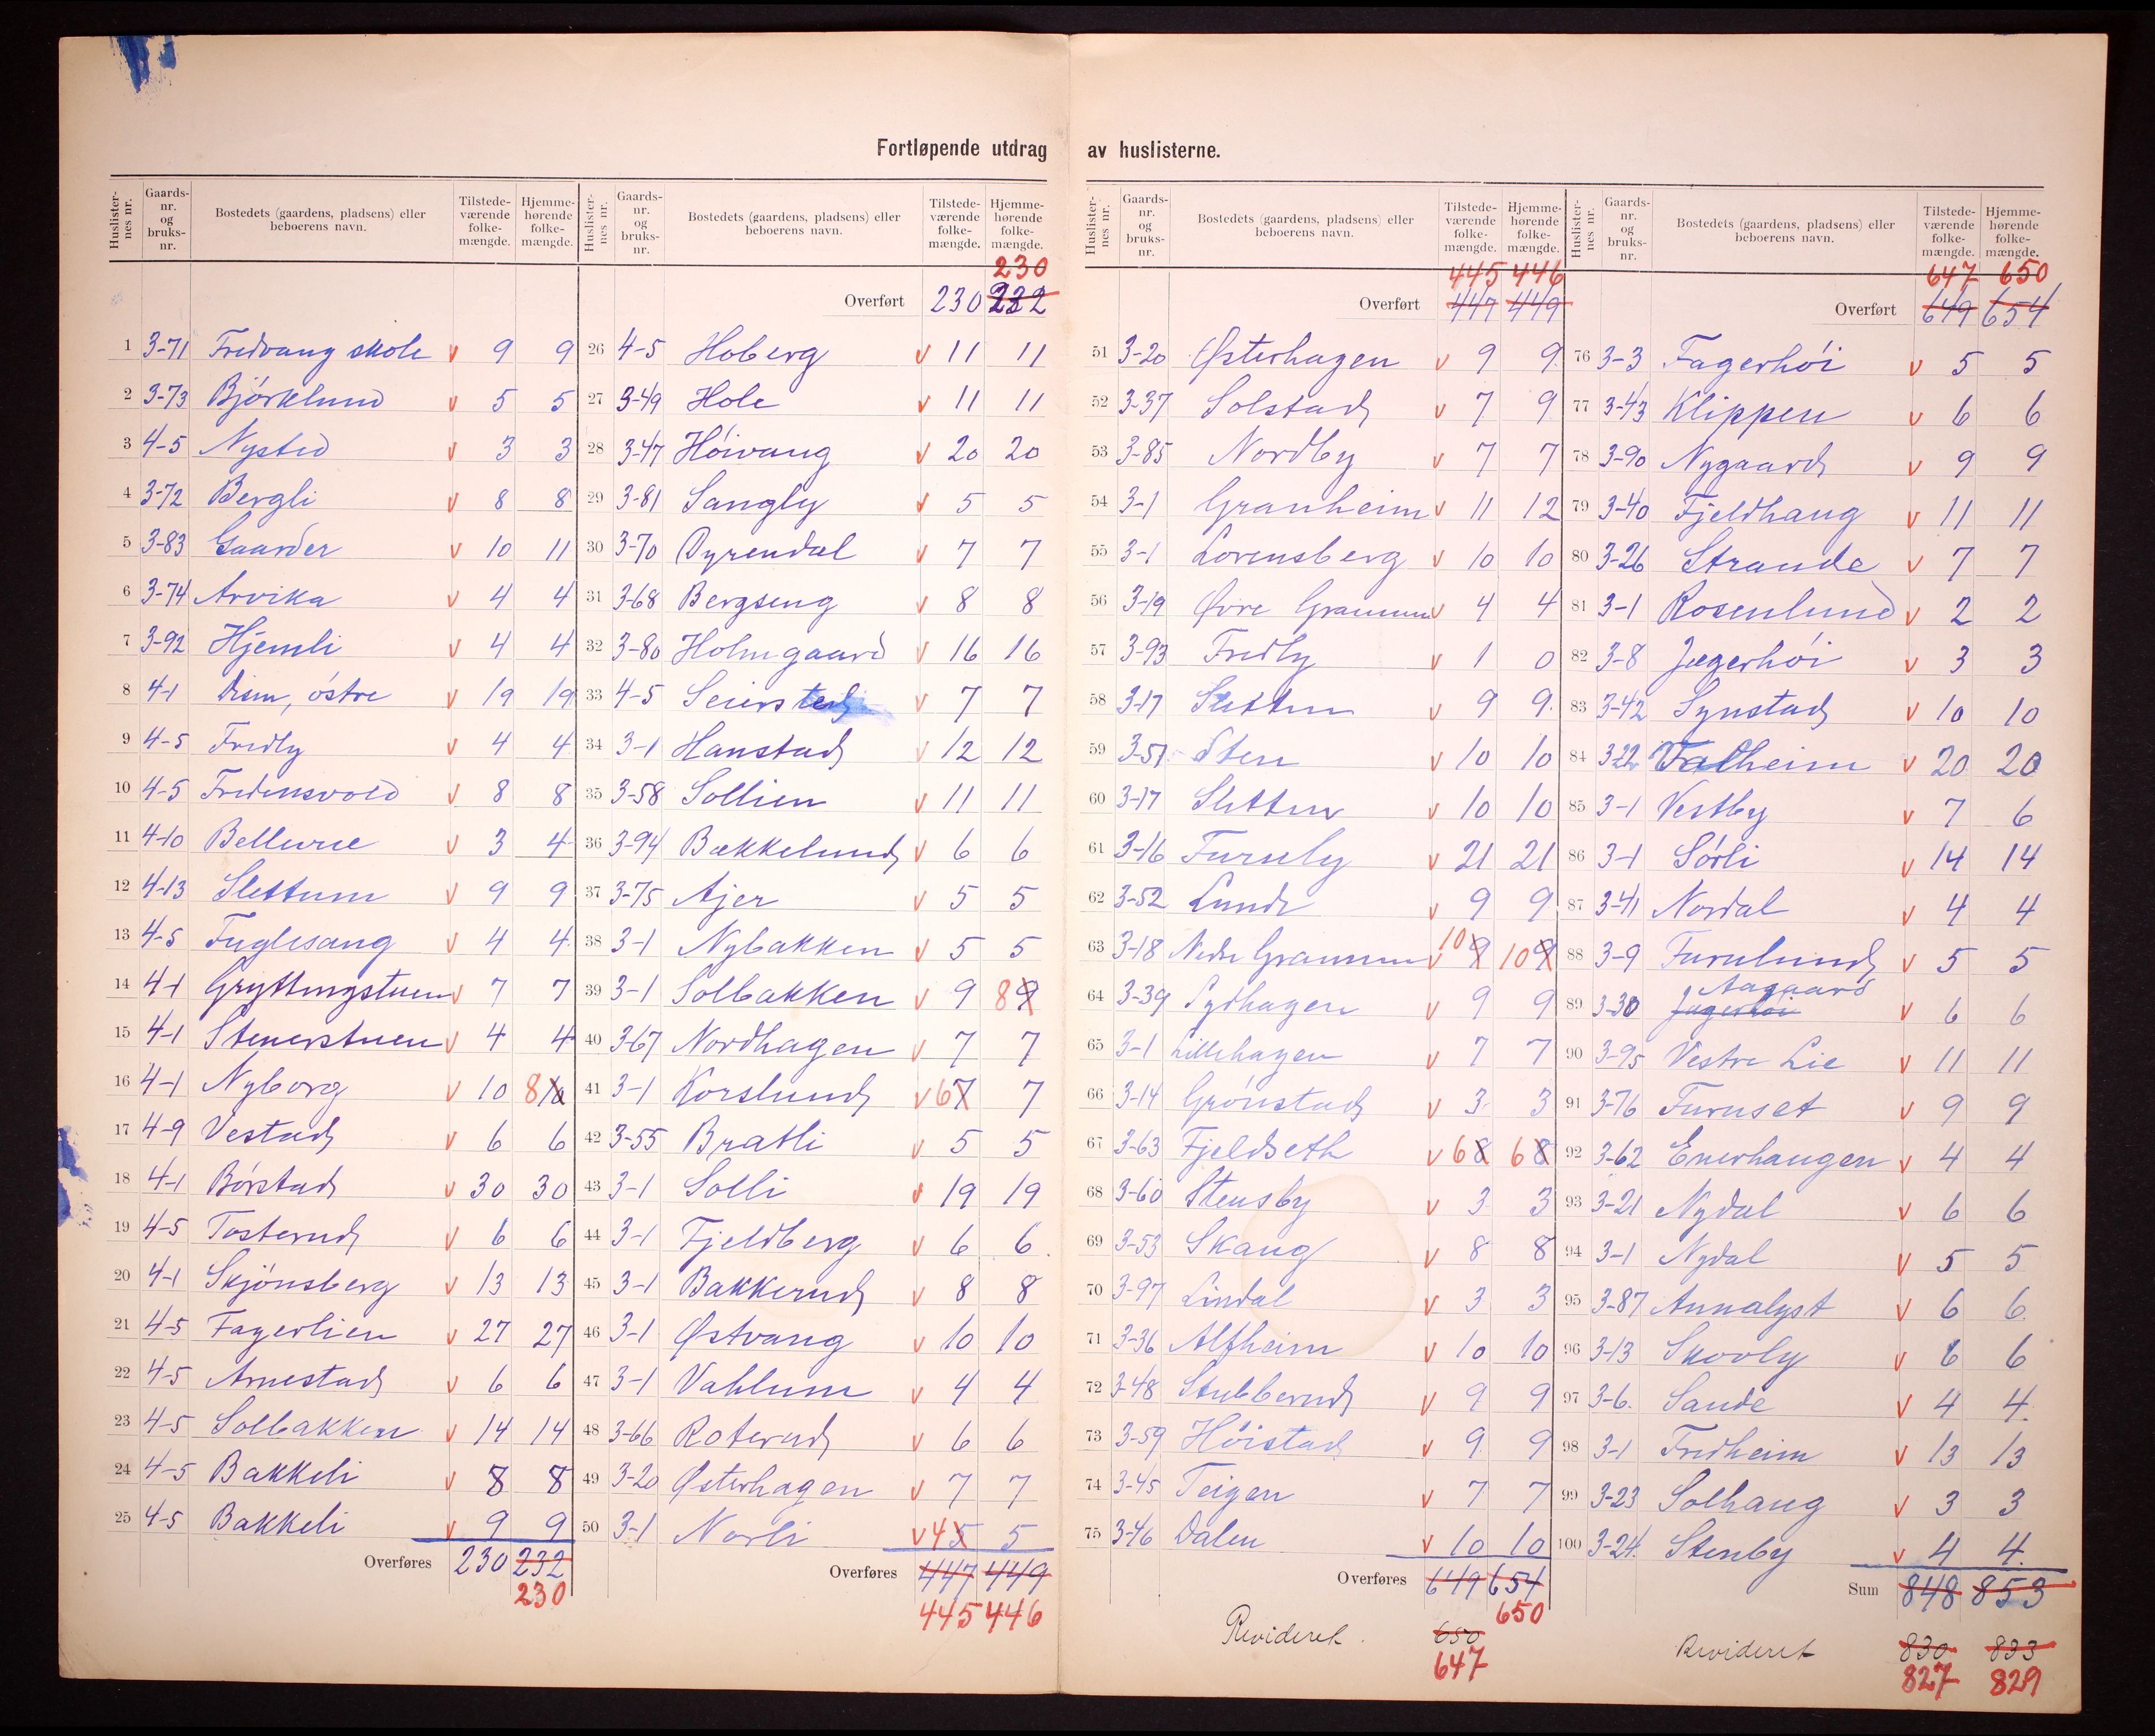 Fortløpende utdrag av huslisterne.
Huslisternes nr. Gaardsnr. og bruksnr. Bostedets (gaardens, pladsens) eller beboerens navn. Tilstedeværende folkemængde. Hjemmehørende folkemængde.
1 3-71 Fredvang skole v 9 9
2 3-73 Bjórklund v 5 5
3 4-5 Nysted v 3 3
4 3-72 Bergli v 8 8
5 3-83 Gaarder v 10 11
6 3-74 Arvika v 4 4
7 3-92 Hjemli v 4 4
8 4-1 Disen, óstre v 19 19
9 4-5 Fredly v 4 4
10 4-5 Fredensvold v 8 8
11 4-10 Bellevue v 3 4
12 4-13 Slettum v 9 9
13 4-5 Fuglesang v 4 4
14 4-1 Gryttingstuen v 7 7
15 4-1 Stenerstuen v 4 4
16 4-1 Nyborg v 10 8 10
17 4-9 Vestad v 6 6
18 4-1 Bórstad v 30 30
19 4-5 Tosterud v 6 6
20 4-1 Skjónsberg v 13 13
21 4-5 Fagerlien v 27 27
22 4-5 Arnestad v 6 6
23 4-5 Solbakken v 14 14
24 4-5 Bakkeli v 8 8
25 4-5 Bakkeli v 9 9
Overføres 230 232
230
Huslisternes nr. Gaardsnr. og bruksnr. Bostedets (gaardens, pladsens) eller beboerens navn. Tilstedeværende folkemængde. Hjemmehørende folkemængde.
230
Overført 230 232
26 4-5 Hoberg v 11 11
27 3-49 Hole v 11 11
28 3-47 Hóivang v 20 20
29 3-81 Sangly v 5 5
30 3-70 Dyrendal v 7 7
31 3-68 Bergseng v 8 8
32 3-80 Holmgaard v 16 16
33 4-5 Seiersted v 7 7
34 3-1 Hanstad v 12 12
35 3-58 Sollien v 11 11
36 3-94 Bækkelund v 6 6
37 3-75 Ajer v 5 5
38 3-1 Nybakken v 5 5
39 3-1 Solbakken v 9 8 9
40 3-67 Nordhagen v 7 7
41 3-1 Korslund v 6 7 7
42 3-55 Bratli v 5 5
43 3-1 Solli v 19 19
44 3-1 Fjeldberg v 6 6
45 3-1 Bakkerud v 8 8
46 3-1 Østvang v 10 10
47 3-1 Vahlum v 4 4
48 3-66 Roterud v 6 6
49 3-20 Østerhagen v 7 7
50 3-1 Norli v 4 5 5
Overføres 447 449
445 446
Huslisternes nr. Gaardsnr. og bruksnr. Bostedets (gaardens, pladsens) eller beboerens navn. Tilstedeværende folkemængde. Hjemmehørende folkemængde.
445 446
Overført 447 449
51 3-20 Østerhagen v 9 9
52 3-37 Solstad v 7 9
53 3-85 Nordby v 7 7
54 3-1 Granheim v 11 12
55 3-1 Lorensberg v 10 10
56 3-19 Øvre Grammen v 4 4
57 3-93 Fredly v 1 0
58 3-17 Sletten v 9 9
59 3-51 Sten v 10 10
60 3-17 Sletten v 10 10
61 3-16 Furuly v 21 21
62 3-52 Lunde v 9 9
63 3-18 Nedre Grammen v 10 9 10 9
64 3-39 Sydhagen v 9 9
65 3-1 Lillehagen v 7 7
66 3-14 Grónstad v 3 3
67 3-63 Fjeldseth v 6 8 6 8
68 3-60 Stensby v 3 3
69 3-53 Skaug v 8 8
70 3-97 Lindal v 3 3
71 3-36 Alfheim v 10 10
72 3-48 Stubberud v 9 9
73 3-59 Hóistad v 9 9
74 3-45 Teigen v 7 7
75 3-46 Dalen v 10 10
Overføres 649 654
650
Revideret. 650
647
Huslisternes nr. Gaardsnr. og bruksnr. Bostedets (gaardens, pladsens) eller beboerens navn. Tilstedeværende folkemængde. Hjemmehørende folkemængde.
647 650
Overført 649 654
76 3-3 Fagerhói v 5 5
77 3-43 Klippen v 6 6
78 3-90 Nygaard v 9 9
79 3-40 Fjeldhaug v 11 11
80 3-26 Strande v 7 7
81 3-1 Rosenlund v 2 2
82 3-8 Jægerhói v 3 3
83 3-42 Synstad v 10 10
84 3-22 Valheim v 20 20
85 3-1 Vestby v 7 6
86 3-1 Sórli v 14 14
87 3-41 Nordal v 4 4
88 3-9 Furulund v 5 5
Aagaard
89 3-30 Jægerhói v 6 6
90 3-95 Vestre Lie v 11 11
91 3-76 Furuset v 9 9
92 3-62 Enerhaugen v 4 4
93 3-21 Nydal v 6 6
94 3-1 Nydal v 5 5
95 3-87 Annalyst v 6 6
96 3-13 Skovly v 6 6
97 3-6. Sande v 4 4.
98 3-1 Fredheim v 13 13
99 3-23 Solhaug v 3 3
100 3-24. Stenby v 4 4.
Sum 848 853
Revideret 830 833
827 829